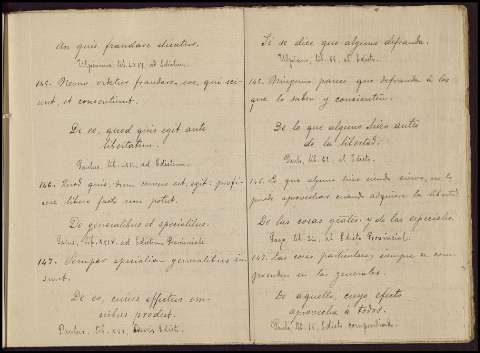 An quis fraudare dicatur.
Ulpianus, lib. LXVI, ad Edictum.
145. Nemo videtur fraudare eos, qui sci-
unt, et consentiunt.
De eo, quod quis egit ante
libertatem.
Paulus, lib. ad Edictum.
146. Quod quis, dum servus est, egit, profi-
cere libero facto non potest.
De generalibus et specialibus.
Gaius, lib. XXIV, ad Edictum Provinciale
147. Semper specialia generalibus in-
sunt.
De eo, cuius effectus om-
nibus prodest.
Paulus, lib. Edicti.
Si se dice que alguno defrauda.
Ulpiano, lib. 66, al Edicto.
145. Ninguno parece que defrauda á los
que lo saben y consienten.
De lo que alguno hizo antes
de la libertad.
Paulo, lib. al Edicto.
146. Lo que alguno hizo siendo siervo, no le
puede aprovechar cuando adquiere la libertad.
De las cosas grales. y de las especiales.
Gayo, lib. al Edicto Provincial.
147. Las cosas particulares siempre se com-
prenden en las generales.
De aquello, cuyo efecto
aprovecha á todos.
Paulo, lib. Edicto compendiado.